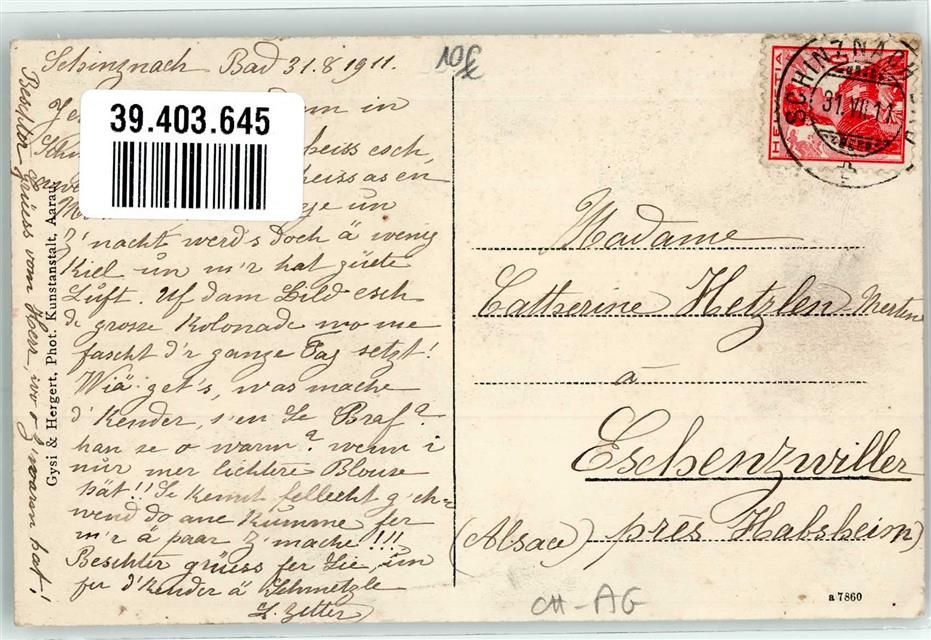 Schinznach Bad 31.8.1911.
10f
39.403.645
in
heiss esch,
heiss as en
un
Z'nacht werd's doch ä wenig
Kiel ün m'r hat güete
Lüft. Uf dam Bild esch
de grosse Kolonade wo me
fascht d'r ganze Tag setzt!
Wiä get's, was mache
d'Kender, s'en Se Braf?
han se o warm? wenn i
nür mer lichtere Blouse
hät!! Se kennt fellecht
wend do ane Kumme fer
m'r ä paar z'mache!!!
Beschter grüss fer Sie, ün
fer d'Kender ä Schmetzle
S. Zetter
grüess vom Herr, wo z'waron hat!
Gysi & Hergert, Phot. Kunstanstalt, Aarau
HELVETIA
SCHINZNACH BAD
31.VIII.11
Madame
Catherine Hetzlen Merten
à
Eschenzwiller
(Alsace) près Habsheim)
CH-AG
a 7860